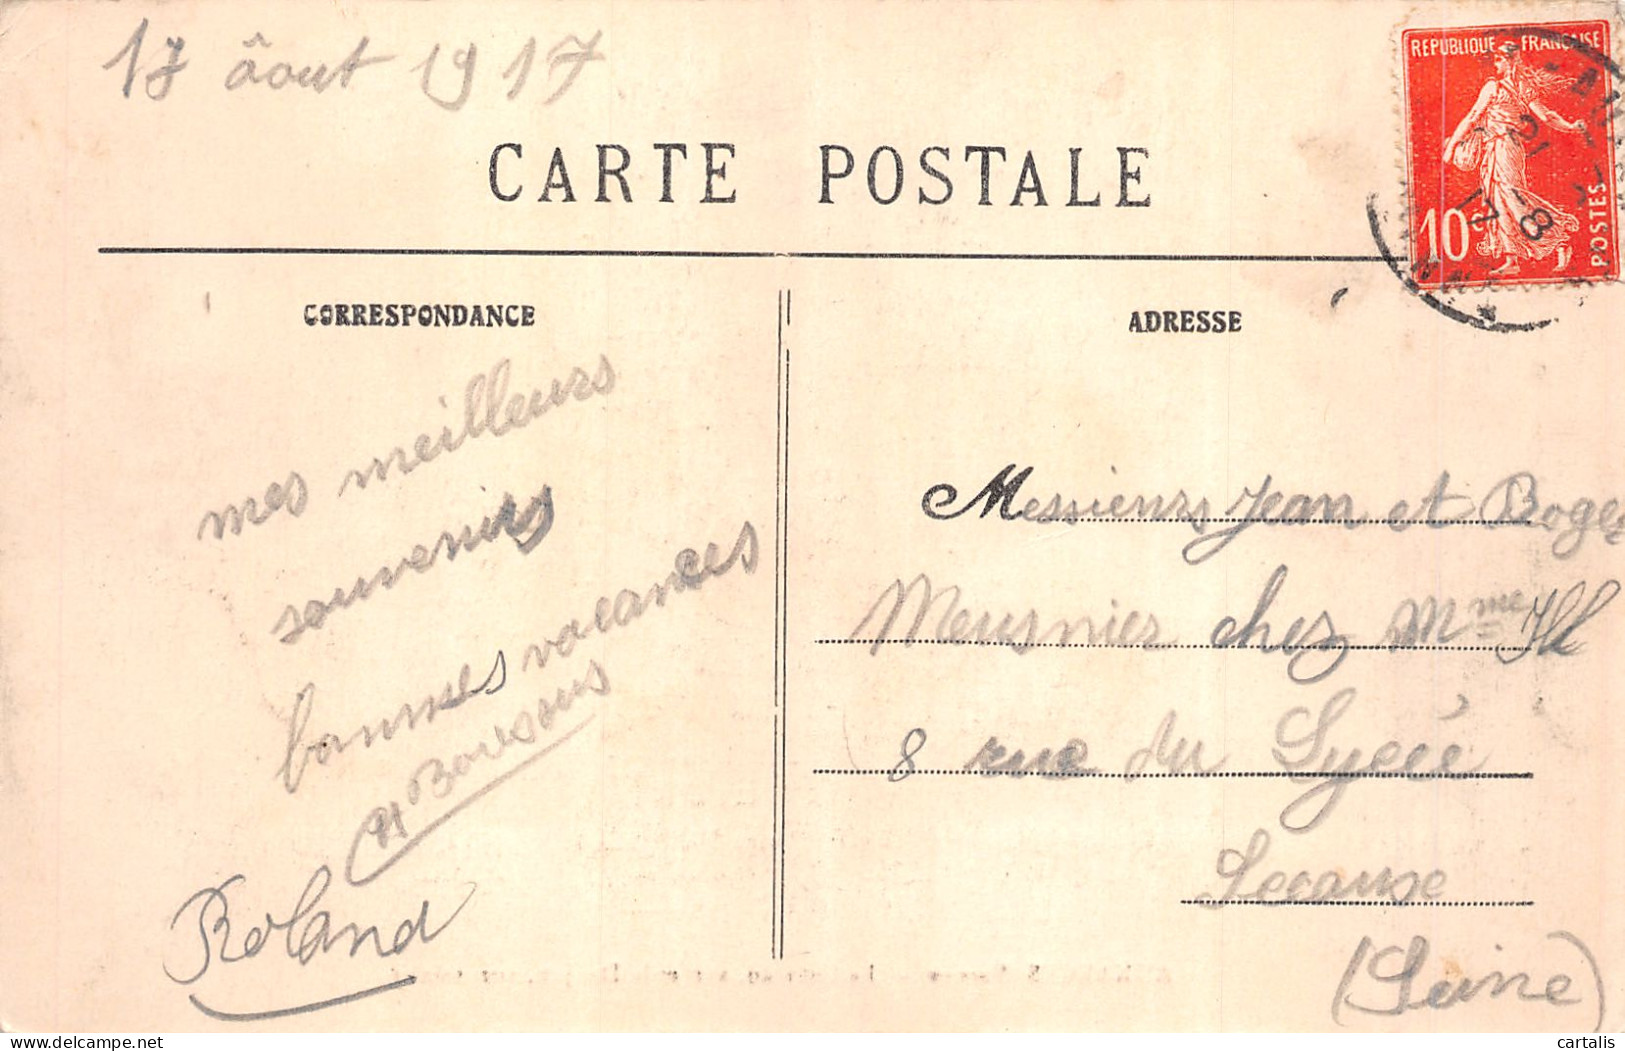 17 âout 1917
REPUBLIQUE FRANÇAISE
10c
POSTES
21 -8
17
CARTE POSTALE
CORRESPONDANCE
ADRESSE
mes meilleurs
souvenirs
bonnes vacances
Roland
Messieurs Jean et Roger
Meusnier chez Mme
8 rue du Lycée
Sceaux
(Seine)
delcampe.net
cartalis